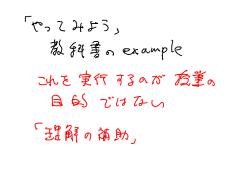 「やってみよう」
教科書の example
これを実行するのが授業の
目的ではない
「理解の補助」